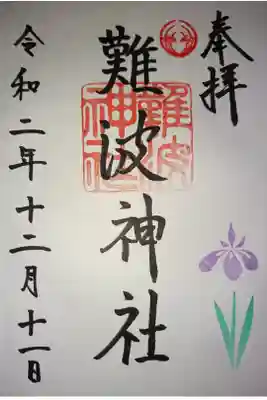 奉拝
難波神社
難波神社
令和二年十二月十一日